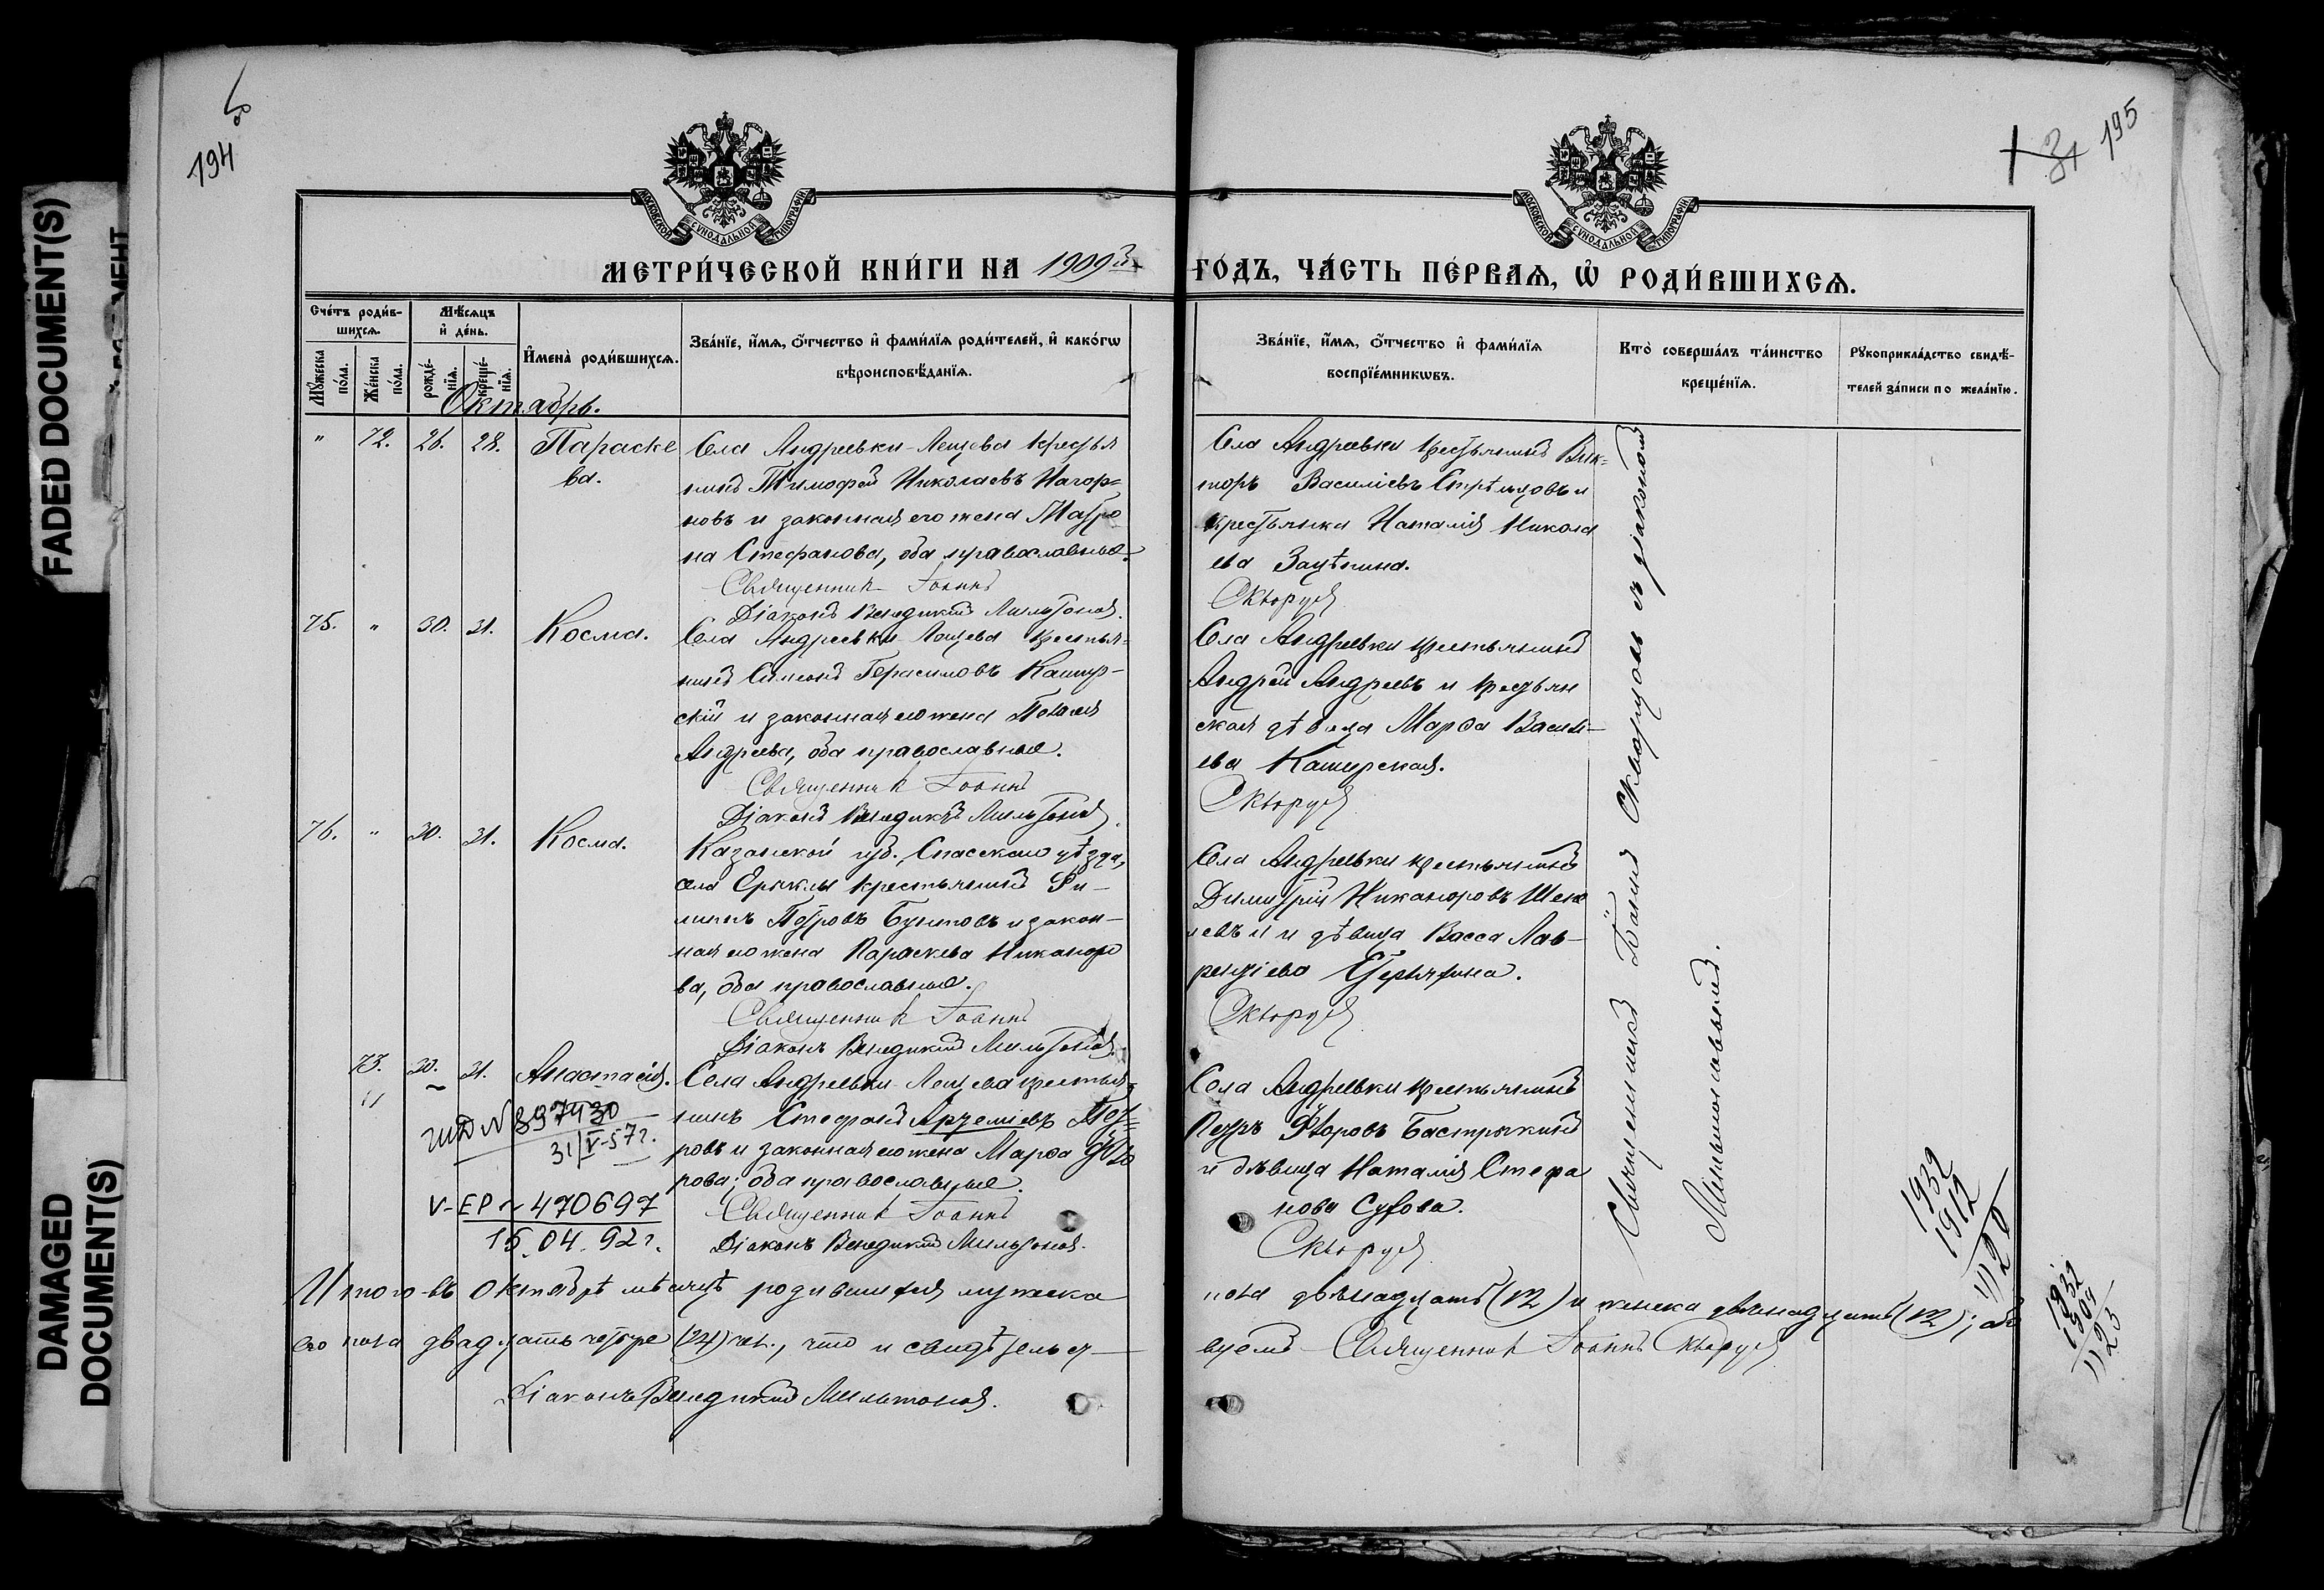 FADED DOCUMENT(S)
DAMAGED
DOCUMENT(S)
194
195
МОСКОВСКОЙ СѴНОДАЛЬНОЙ ТИПОГРАФІИ
МОСКОВСКОЙ СѴНОДАЛЬНОЙ ТИПОГРАФІИ
МЕТРИ́ЧЕСКОЙ КНИ́ГИ НА 1909й
ГО́ДЪ, ЧА́СТЬ ПЕ́РВАѦ, Ѡ РОДИ́ВШИХСѦ.
Сче́тъ роди́в-
шихсѧ.
Мꙋ́жеска по́ла.
Же́нска по́ла.
Мѣ́сѧцъ
и҆ де́нь.
рожде́-
нїѧ.
креще́-
нїѧ.
И҆мена̀ роди́вшихсѧ.
Зва́нїе, и҆́мѧ, ѻ҆́тчество и҆ фами́лїѧ роди́телей, и҆ како́гѡ
вѣроисповѣ́данїѧ.
Зва́нїе, и҆́мѧ, ѻ҆́тчество и҆ фами́лїѧ
воспрїе́мникѡвъ.
Кто̀ соверша́лъ та́инство
креще́нїѧ.
Рꙋкоприкла́дство свидѣ́-
телей за́писи по жела́нїю.
Октябрь.
" 72. 26. 28. Параске
ва.
Села Андреевки-Лещева крестья
нинъ Тимофей Николаевъ Нагор=
новъ и законная его жена Матро
на Стефанова, оба православные.
Священникъ Іоаннъ
Діаконъ Венедиктъ Мильтоновъ.
Села Андреевки крестьянинъ Вик=
торъ Василіевъ Стрѣльцовъ и
крестьянка Наталія Никола
ева Зацѣпина.
75. " 30. 31. Косма.
Села Андреевки Лещева крестья=
нинъ Симеонъ Герасимовъ Кашир-
скій и законная его жена Пелагія
Андреева, оба православные.
Священникъ Іоаннъ
Діаконъ Венедиктъ Мильтоновъ.
Села Андреевки крестьянинъ
Андрей Андреевъ и крестьян
ская дѣвица Марѳа Васильева
Каширская.
76. " 30. 31. Косма.
Казанской губ. Спасскаго уѣзда,
села Ерыклы крестьянинъ Фи-
липпъ Петровъ Бунтовъ и закон-
ная его жена Параскева Никаноро
ва, оба православные.
Священникъ Іоаннъ
Діаконъ Венедиктъ Мильтоновъ.
Села Андреевки крестьянинъ
Димитрій Никаноровъ
и дѣвица Васса Лав-
рентіева
73. 30. 31. Анастасія.
Села Андреевки-Лещева крестья=
нинъ Стефанъ Артеміевъ Пет=
ровъ и законная его жена Марѳа Ѳедо
рова; оба православные.
Священникъ Іоаннъ
Діаконъ Венедиктъ Мильтоновъ.
Села Андреевки крестьянинъ
Петръ Ѳедоровъ Бастрыкинъ
и дѣвица Наталія Стефа
нова Сухова.
N 897430
31/V-57 г.
V-ЕР № 470697
15.04.92 г.
Священникъ съ діакономъ
Мильтоновымъ.
Итого въ октябрѣ мѣсяцѣ родившихся мужеска
пола двѣнадцать (12) и женска двѣнадцать (12); обо
его пола двадцать четыре (24) чел., что и свидѣтельст-
вуемъ Священникъ Іоаннъ
Діаконъ Венедиктъ Мильтоновъ.
1932
1912
20
1932
1909
23